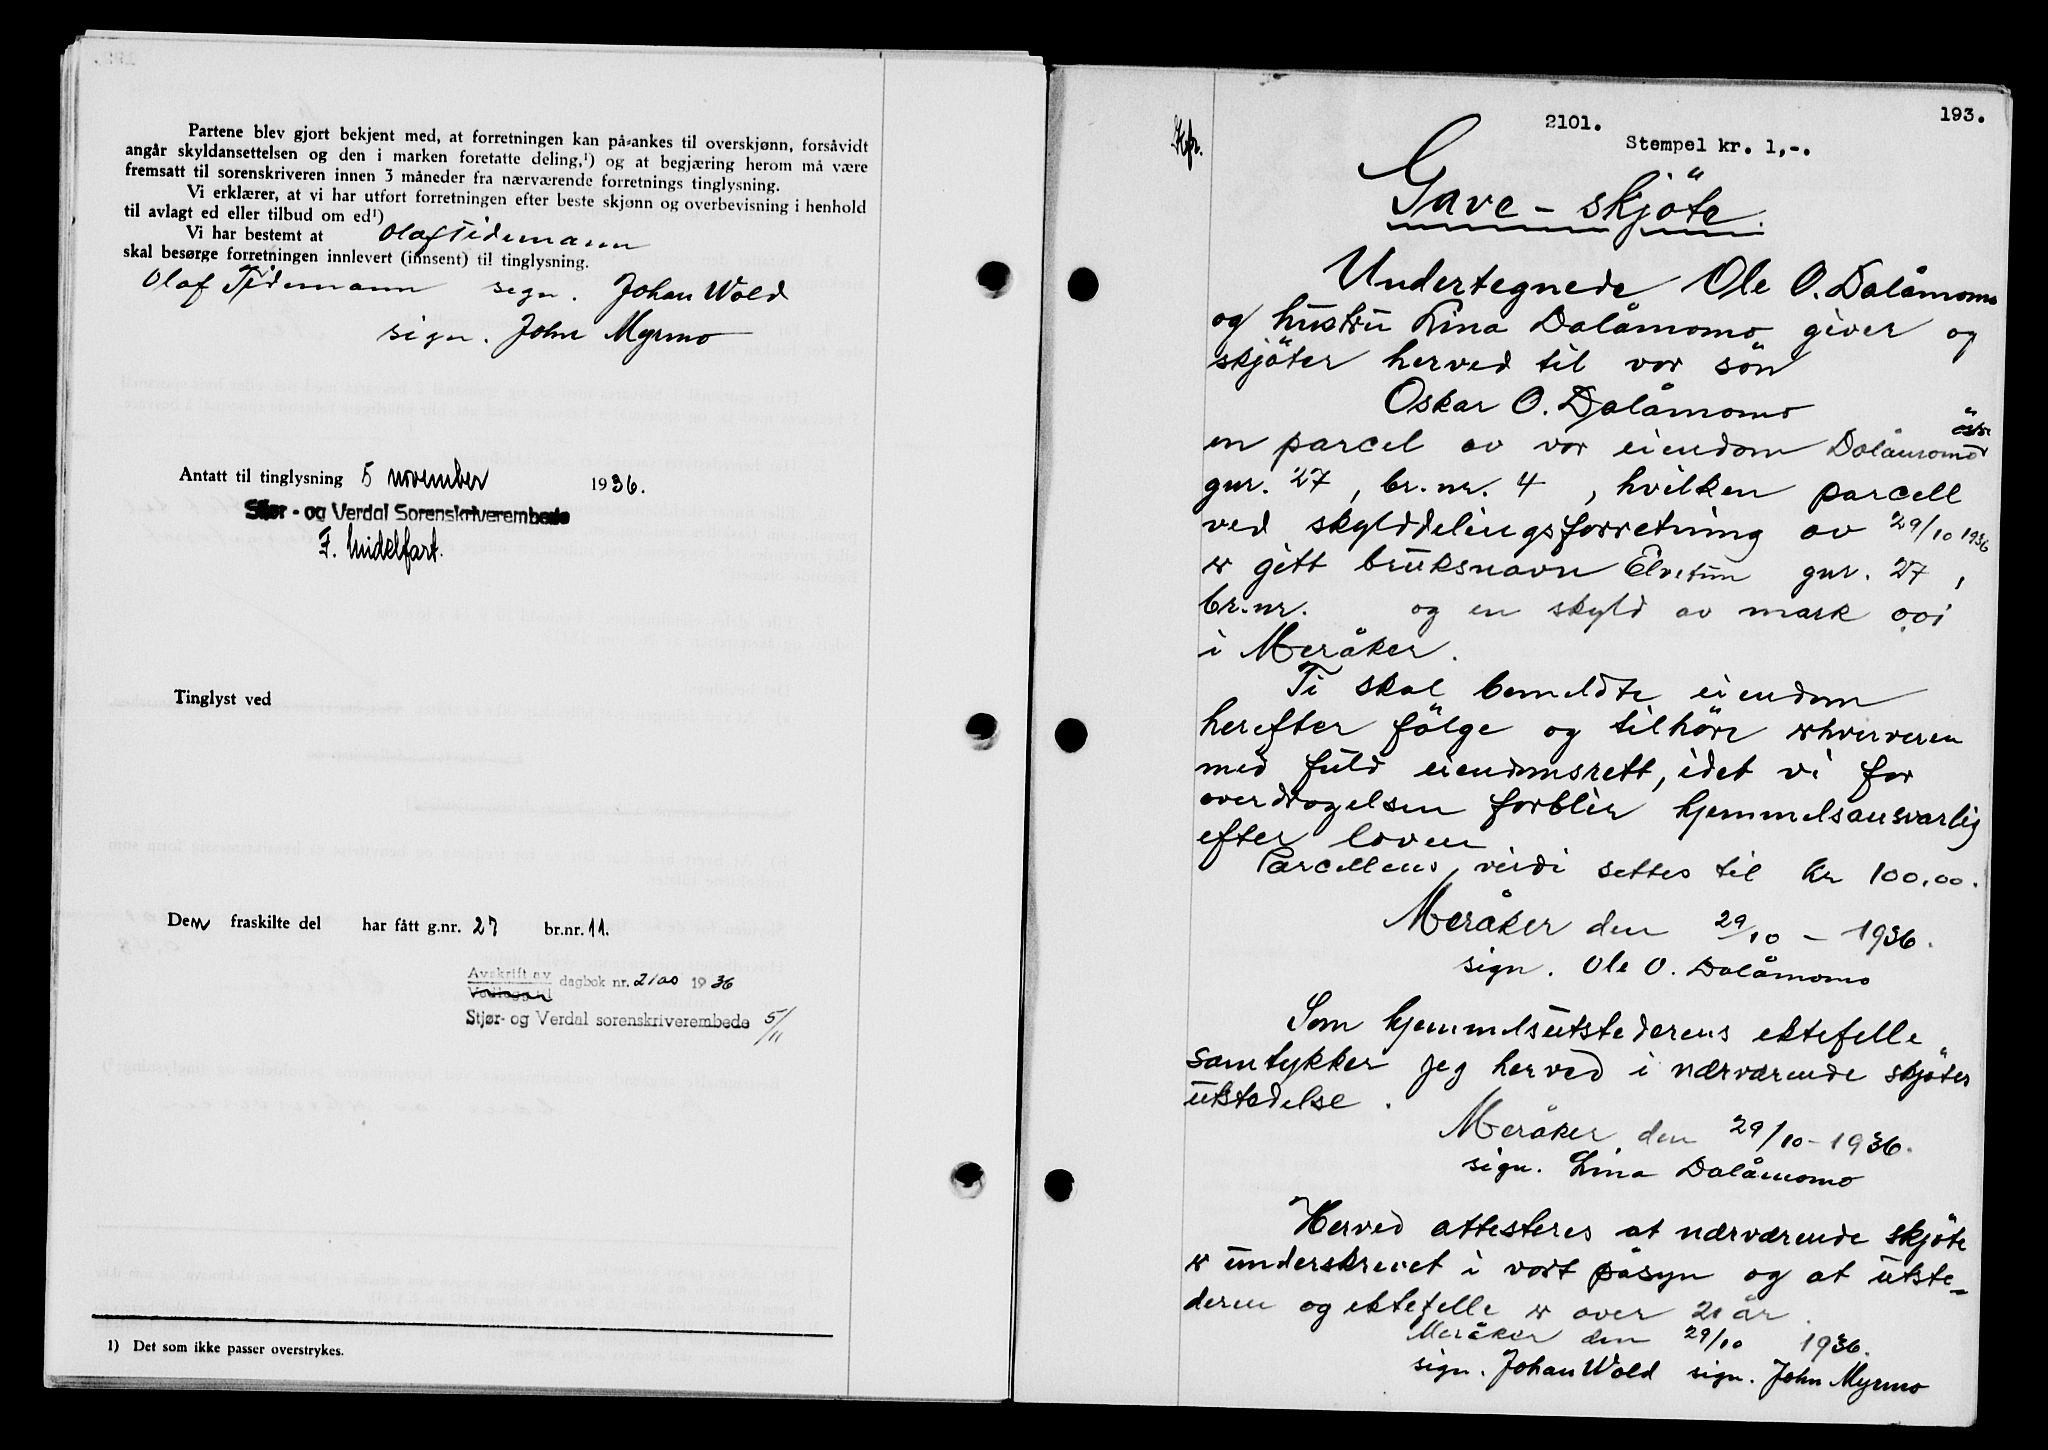 Partene blev gjort bekjent med, at forretningen kan på-ankes til overskjønn, forsåvidt
angår skyldansettelsen og den i marken foretatte deling,¹) og at begjæring herom må være
fremsatt til sorenskriveren innen 3 måneder fra nærværende forretnings tinglysning.
Vi erklærer, at vi har utført forretningen efter beste skjønn og overbevisning i henhold
til avlagt ed eller tilbud om ed¹)
Vi har bestemt at Olaf Tidemann
skal besørge forretningen innlevert (innsent) til tinglysning.
Olaf Tidemann sign. Johan Wold
sign. John Myrmo
Antatt til tinglysning 5 november 1936.
Stjør- og Verdal Sorenskriverembede
F. Midelfart.
Tinglyst ved
Den fraskilte del har fått g.nr. 27 br.nr. 11.
Avskrift av
Vedlegg til dagbok nr. 2100 1936
Stjør- og Verdal sorenskriverembede 5/11
1) Det som ikke passer overstrykes.
193.
2101.
Stempel kr. 1,-.
Kfr.
Gave - skjöte.
Undertegnede Ole O. Dalåmomo
og hustru Lina Dalåmomo giver og
skjöter herved til vor sön
Oskar O. Dalåmomo
en parcel av vor eiendom Dalåmomo östre
gnr. 27, br.nr. 4, hvilken parcell
ved skylddelingsforretning av 29/10 1936
er gitt bruksnavn Elvetun gnr. 27,
br.nr. og en skyld av mark 0.01
i Meråker.
Ti skal bemeldte eiendom
herefter fölge og tilhöre erhververen
med fuld eiendomsrett, idet vi for
overdragelsen forblir hjemmelsansvarlig
efter loven
Parcellens verdi settes til kr 100,00.
Meråker den 29/10 - 1936.
sign. Ole O. Dalåmomo
Som hjemmelsutstederens ektefelle
samtykker jeg herved i nærværende skjötes
utstedelse.
Meråker den 29/10 - 1936.
sign. Lina Dalåmomo
Herved attesteres at nærværende skjöte
er underskrevet i vort påsyn og at utste-
deren og ektefelle er over 21 år.
Meråker den 29/10 1936.
sign. Johan Wold sign. John Myrmo